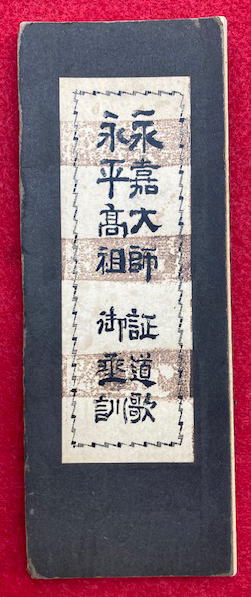 永嘉大師 証道歌
永平高祖 御垂訓